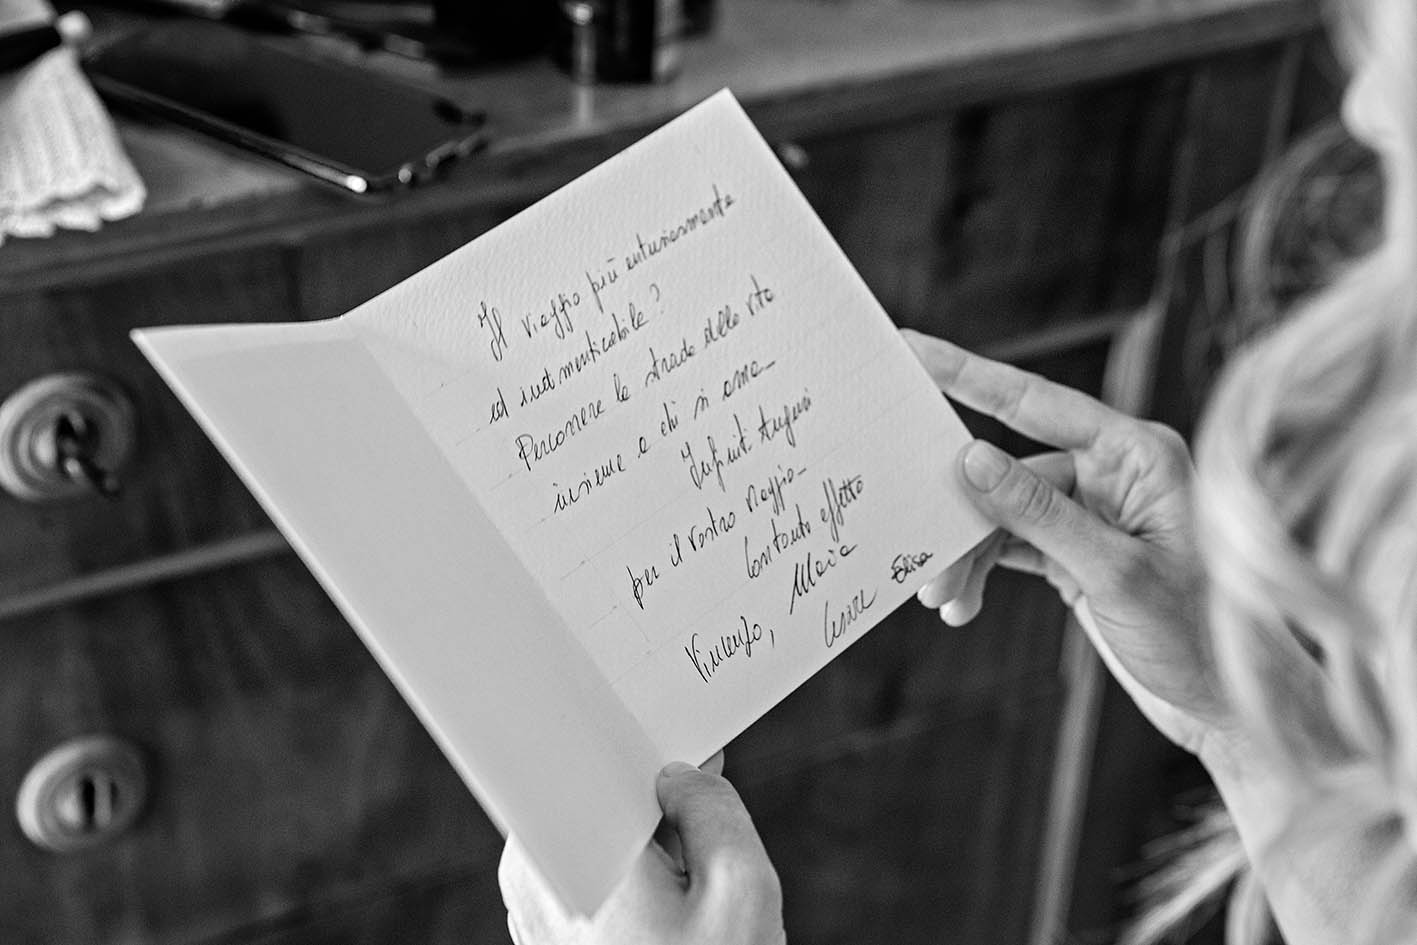 Il viaggio più entusiasmante
ed indimenticabile?
Percorrere le strade della vita
insieme a chi si ama_
Infiniti Auguri
per il vostro viaggio_
Con tanto affetto
Vincenzo, Maria
Cesare Elisa